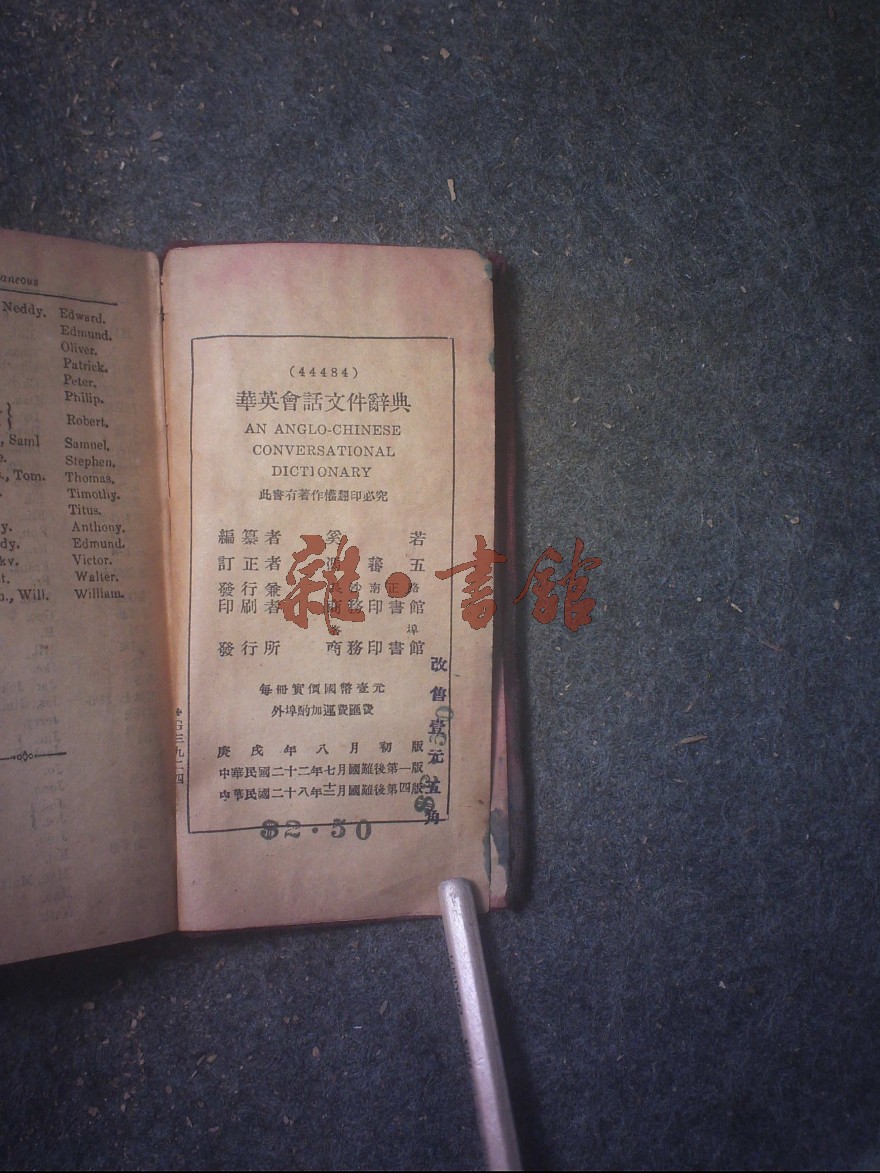 aneous
Neddy. Edward.
Edmund.
Oliver.
Patrick.
Peter.
Philip.
} Robert.
, Saml Samuel.
Stephen.
., Tom. Thomas.
Timothy.
Titus.
y. Anthony.
dy. Edmund.
Victor.
t. Walter.
., Will. William.
(44484)
華英會話文件辭典
AN ANGLO-CHINESE
CONVERSATIONAL
DICTIONARY
此書有著作權翻印必究
編纂者 奚若
訂正者 蕃五
發行兼 長沙南正路
印刷者 商務印書館
各埠
發行所 商務印書館
每冊實價國幣壹元
外埠酌加運費匯費
庚戌年八月初版
中華民國二十二年七月國難後第一版
中華民國二十八年十二月國難後第四版
改售壹元五角
$2.50
雜·書館